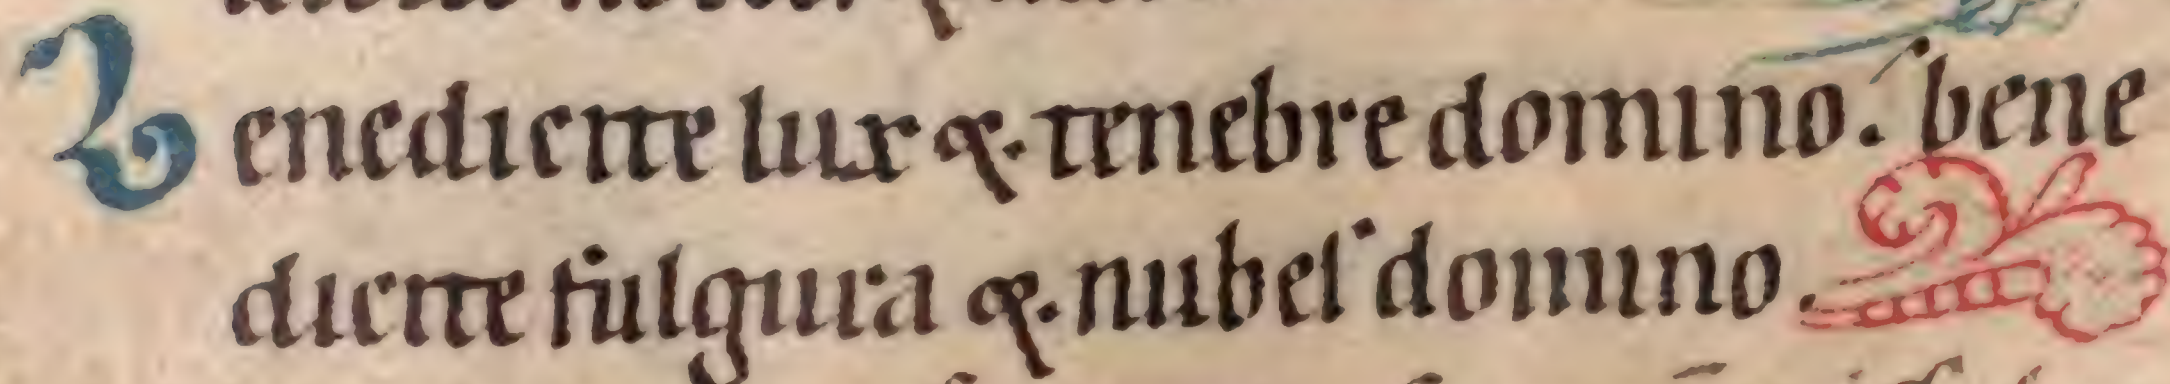 Benedicite lux & tenebre domino. bene
dicite fulgura & nubes domino.